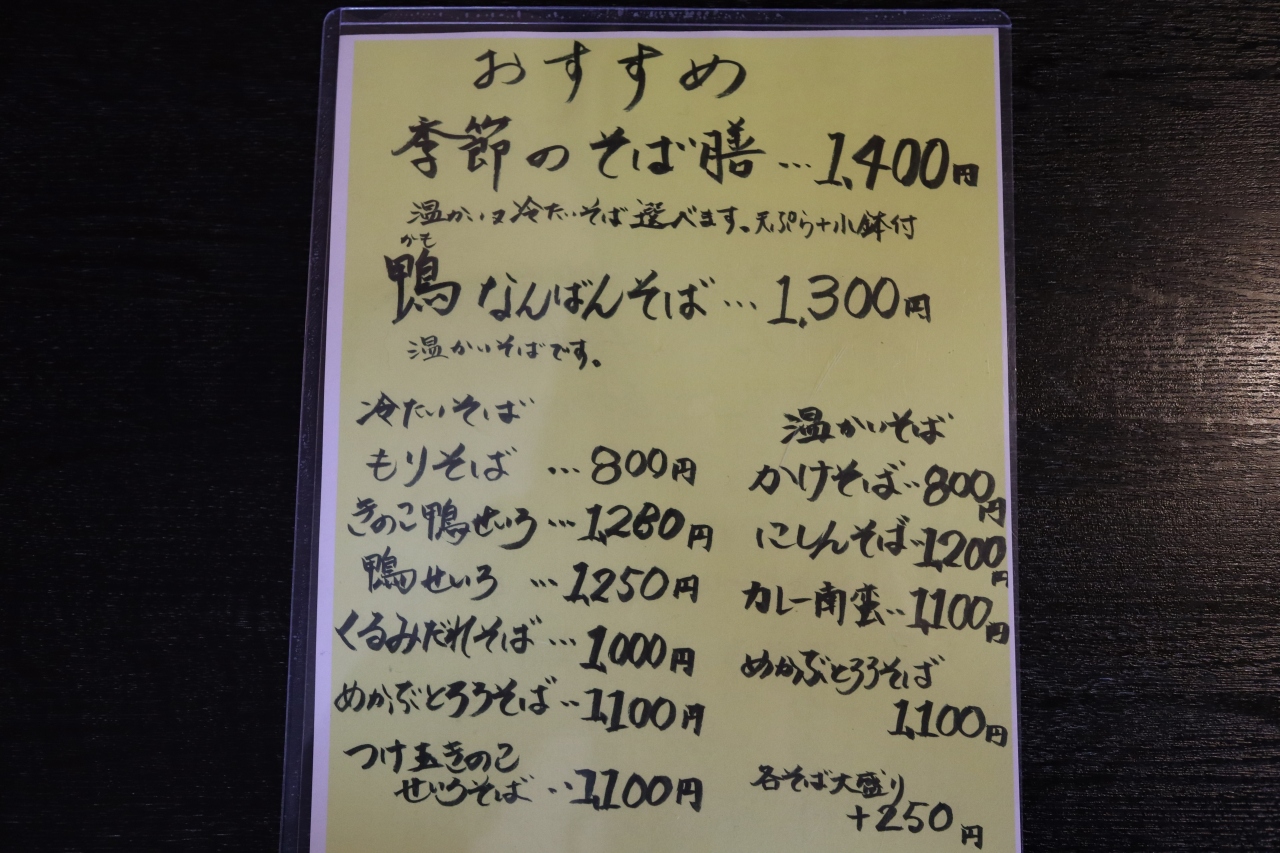 おすすめ
季節のそば膳…1,400円
温かい又冷たいそば選べます。天ぷら+小鉢付
かも
鴨なんばんそば…1,300円
温かいそばです。
冷たいそば
もりそば…800円
きのこ鴨せいろ…1,280円
鴨せいろ…1,250円
くるみだれそば…1,000円
めかぶとろろそば‥1,100円
つけ玉きのこ
せいろそば‥1,100円
温かいそば
かけそば‥800円
にしんそば‥1,200円
カレー南蛮‥1,100円
めかぶとろろそば
1,100円
各そば大盛り
+250円